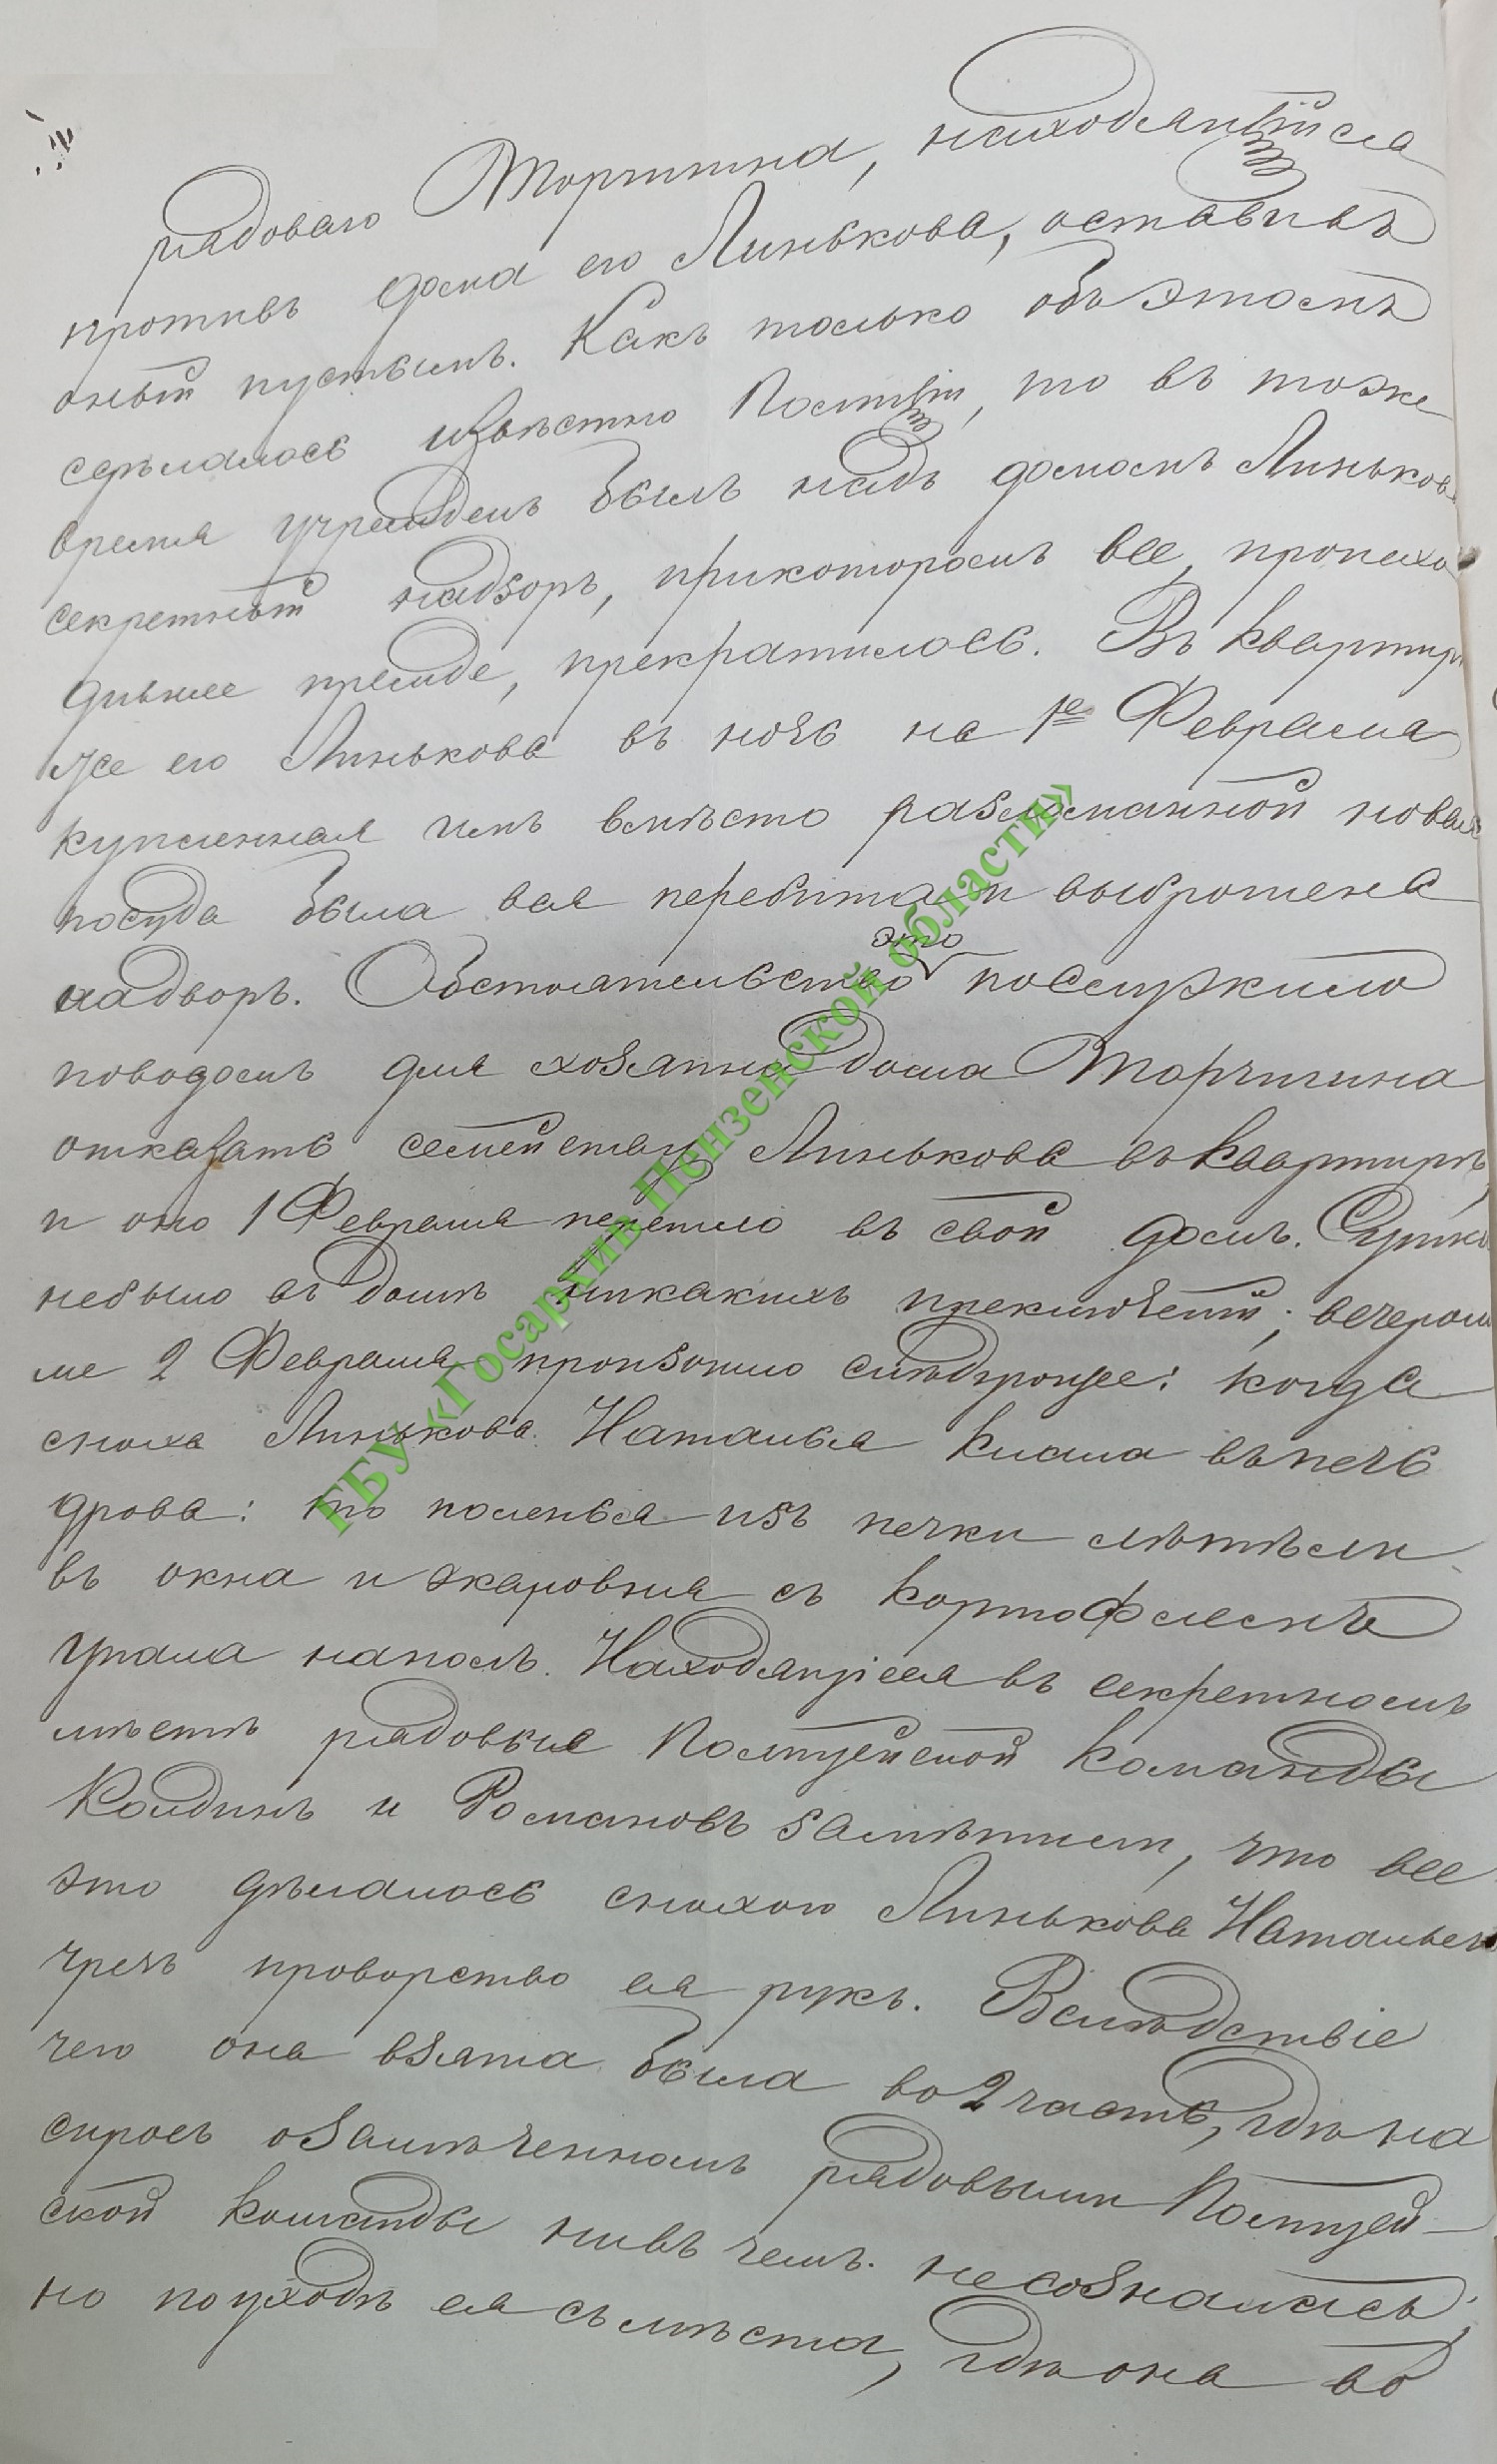 рядоваго Торчигина, находящійся
противъ дома его Линькова, оставивъ
оный пустымъ. Какъ только объ этомъ
сдѣлалось извѣстно Полиціи, то въ тоже
время учрежденъ былъ надъ домомъ Линькова
секретный надзоръ, прикоторомъ все, происхо
дившее прежде, прекратилось. Въ квартирѣ
же его Линькова въ ночь на 1е Февраля
купленная имъ вмѣсто разломанной новая
посуда была вся перебита и выброшена
надворъ. Обстоятельство это послужило
поводомъ для хозяина дома Торчигина
отказать семейству Линькова въ квартирѣ,
и оно 1 Февраля перешло въ свой домъ. Сутки
небыло въ домѣ никакихъ приключеній; вечеромъ
же 2 Февраля произошло слѣдующее: когда
сноха Линькова Наталья клала въ печь
дрова: то поленья изъ печки лѣтѣли
въ окна и жаровня съ картофелемъ
упала наполъ. Находящіеся въ секретномъ
мѣстѣ рядовые Полицейской команды
Колдинъ и Романовъ замѣтили, что все
это дѣлалось снохою Линькова Натальею
чрезъ проворство ея рукъ. Вслѣдствіе
чего она взята была во 2 часть, гдѣ на
спросъ о замѣченномъ рядовыми Полицей-
ской команды ни въ чемъ несозналась;
но по уходѣ ея съ мѣста, гдѣ она во
ГБУ «Госархив Пензенской области»